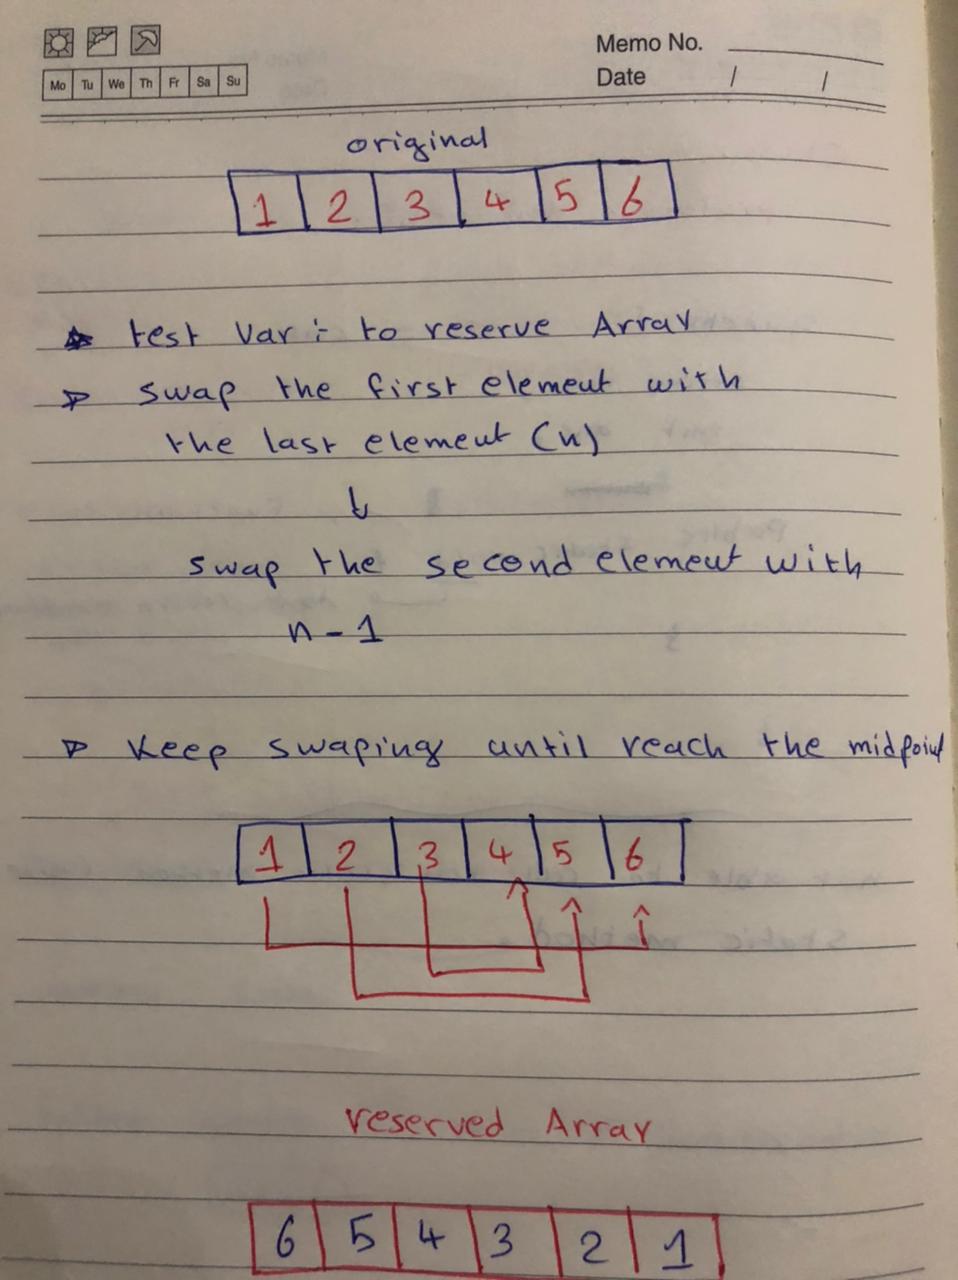 Memo No.
Mo Tu We Th Fr Sa Su
Date / /
original
1 2 3 4 5 6
test Var :- to reserve Array
swap the first element with
the last element (n)
swap the second element with
n - 1
Keep swaping until reach the midpoint
1 2 3 4 5 6
reserved Array
6 5 4 3 2 1